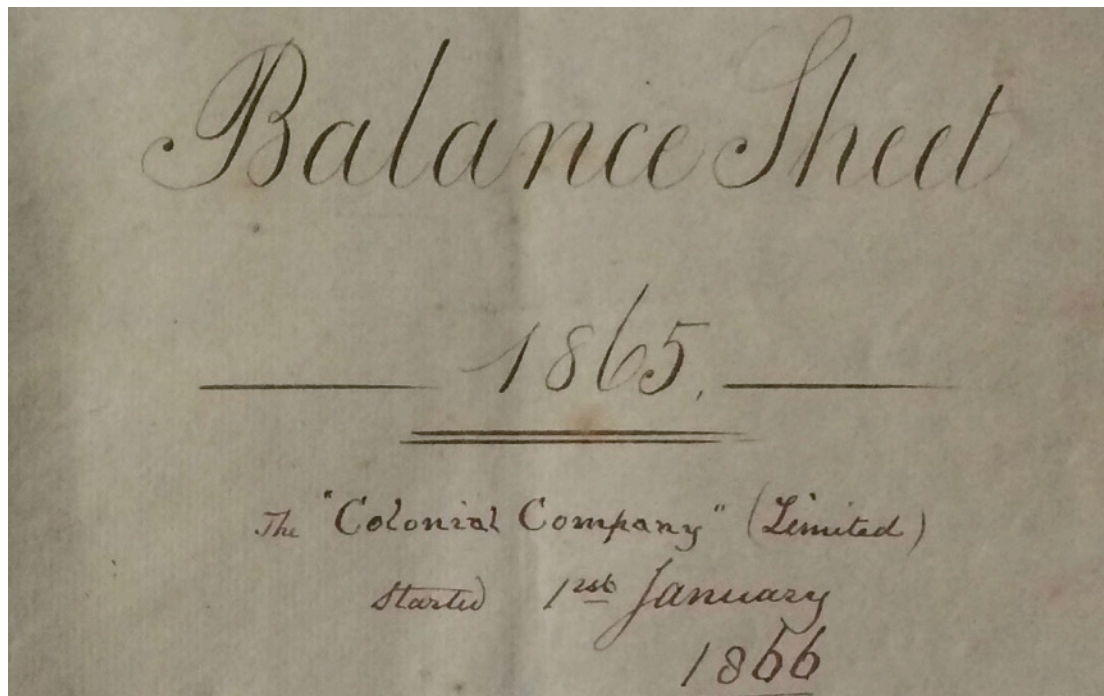 Balance Sheet
1865.
The "Colonial Company" (Limited)
Started 1st January
1866